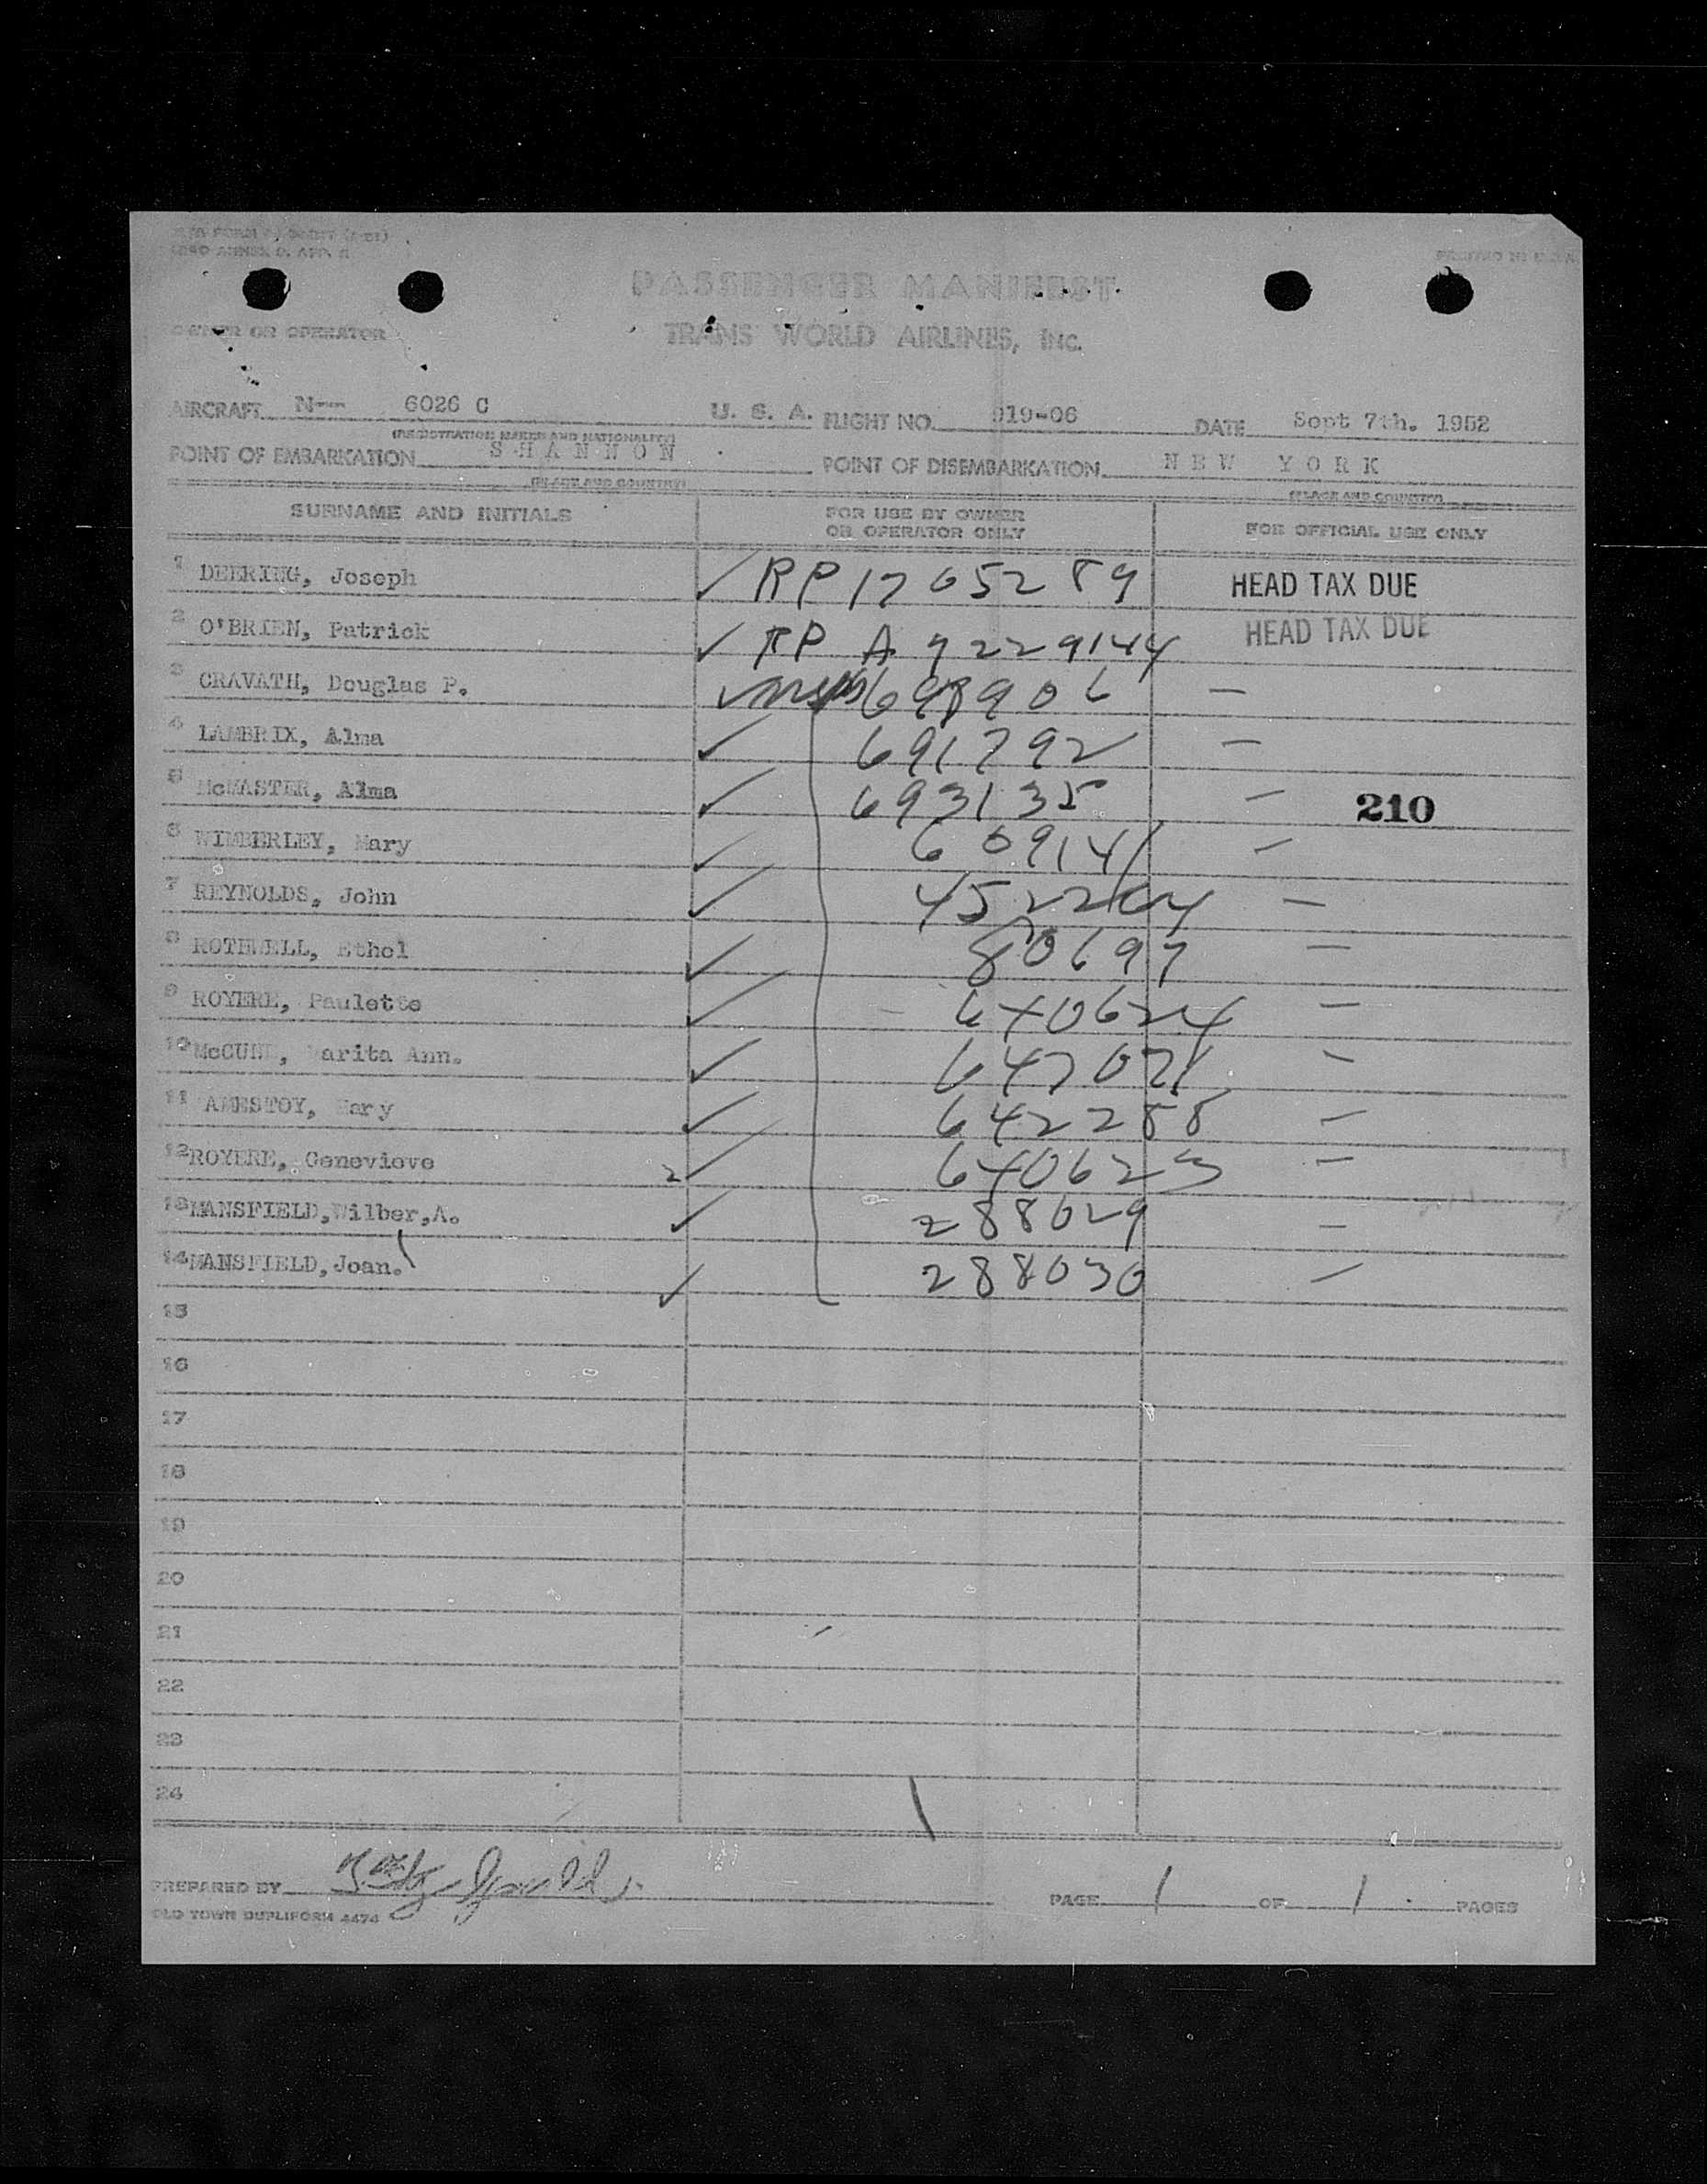 PASSENGER MANIFEST
OWNER OR OPERATOR TRANS WORLD AIRLINES, INC.
AIRCRAFT N-- 6026 C U. S. A. FLIGHT NO. 919-06 DATE Sept 7th. 1952
(REGISTRATION MARKS AND NATIONALITY)
POINT OF EMBARKATION S H A N N O N POINT OF DISEMBARKATION N E W Y O R K
(PLACE AND COUNTRY) (PLACE AND COUNTRY)
SURNAME AND INITIALS FOR USE BY OWNER OR OPERATOR ONLY FOR OFFICIAL USE ONLY
1 DEERING, Joseph ✓ RP 17052 89 HEAD TAX DUE
2 O'BRIEN, Patrick ✓ RP A 7229144 HEAD TAX DUE
3 CRAVATH, Douglas P. ✓ 698906 —
4 LAMBRIX, Alma ✓ 691792 —
5 McMASTER, Alma ✓ 693135 — 210
6 WIMBERLEY, Mary ✓ 609141 —
7 REYNOLDS, John ✓ —
8 ROTHWELL, Ethel ✓ 80697 —
9 ROYERE, Paulette ✓ 640624 —
10 McCUNE, Marita Ann. ✓ 647071 —
11 AMESTOY, Mary ✓ 642288 —
12 ROYERE, Genevieve 2 ✓ 640623 —
13 MANSFIELD, Wilber, A. ✓ 288029 —
14 MANSFIELD, Joan. ✓ 288030 —
15
16
17
18
19
20
21
22
23
24
PREPARED BY PAGE 1 OF 1 PAGES
OLD TOWN DUPLIFORM 4474